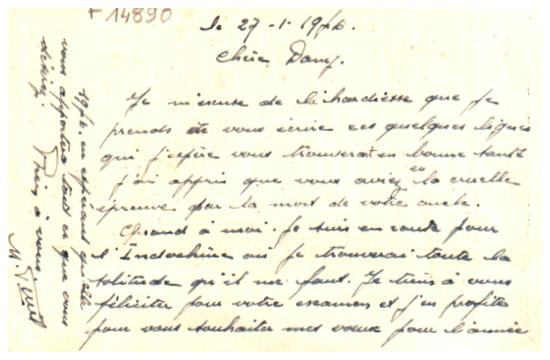 F 14890
le 27-1-1946.
Chère Dany.
Je m'excuse de la hardiesse que je
prends de vous écrire ces quelques lignes
qui j'espère vous trouverat en bonne santé
j'ai appris que vous aviez eu la cruelle
épreuve par la mort de votre oncle.
Quand à moi. Je suis en route pour
l'Indochine où je trouverai toute la
solitude qu'il me faut. Je tiens à vous
féliciter pour votre examen et j'en profite
pour vous souhaiter mes vœux pour l'année
1946. en espérant qu'elle
vous apportera tout ce que vous
désirez.
Bien à vous